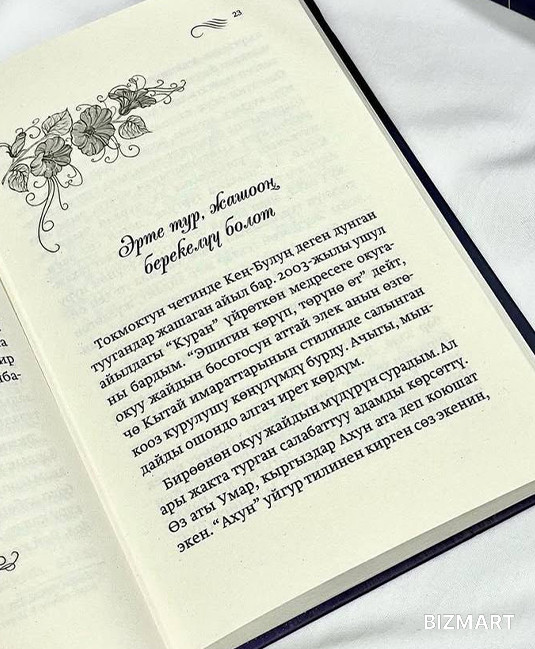 23
Эрте тур, жашооң
берекелүү болот
Токмоктун четинде Кең-Булуң деген дунган
туугандар жашаган айыл бар. 2003-жылы ушул
айылдагы “Куран” үйрөткөн медресеге окуга-
ны бардым. “Эшигин көрүп, төрүнө өт” дейт,
окуу жайдын босогосун аттай элек анын өзгө-
чө Кытай имараттарынын стилинде салынган
кооз курулушу көңүлүмдү бурду. Ачыгы, мын-
дайды ошондо алгач ирет көрдүм.
Бирөөнөн окуу жайдын мүдүрүн сурадым. Ал
ары жакта турган салабаттуу адамды көрсөттү.
Өз аты Умар, кыргыздар Ахун ата деп коюшат
экен. “Ахун” уйгур тилинен кирген сөз экенин,
BIZMART